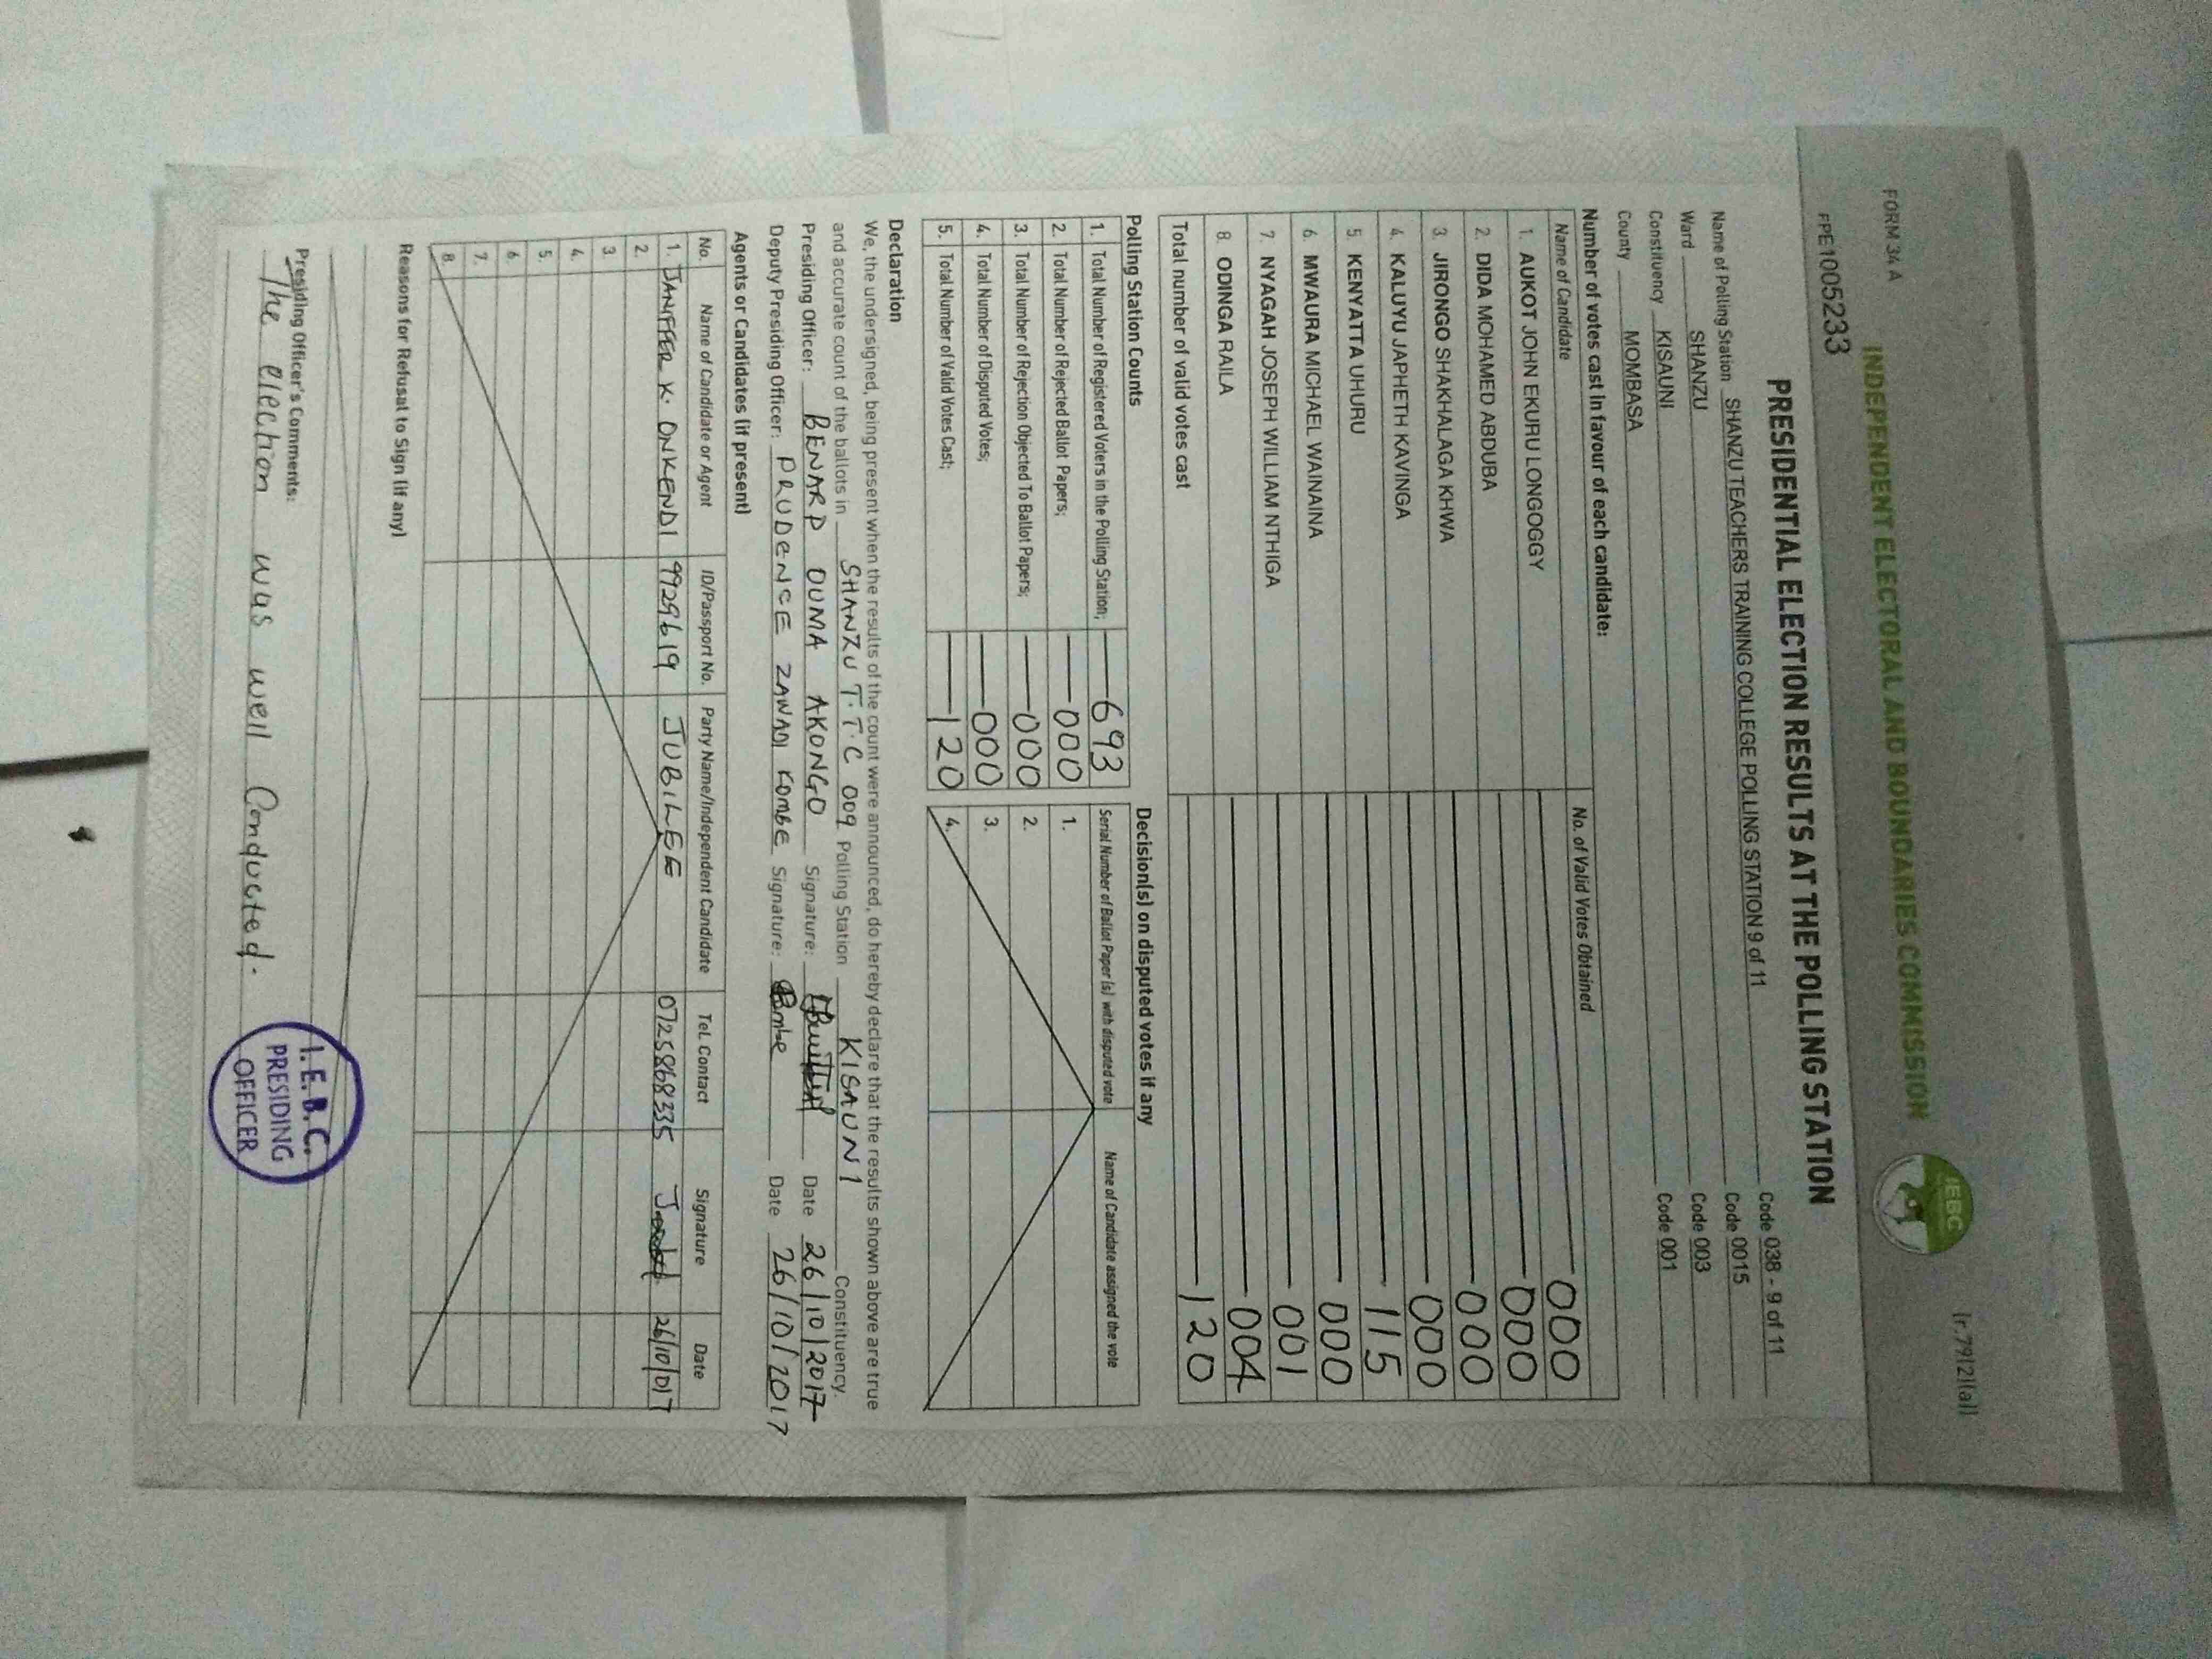 FORM 34 A
[r.79(2)(a)]
INDEPENDENT ELECTORAL AND BOUNDARIES COMMISSION
IEBC
FPE1005233
PRESIDENTIAL ELECTION RESULTS AT THE POLLING STATION
Name of Polling Station SHANZU TEACHERS TRAINING COLLEGE POLLING STATION 9 of 11 Code 038 - 9 of 11
Ward SHANZU Code 0015
Constituency KISAUNI Code 003
County MOMBASA Code 001
Number of votes cast in favour of each candidate:
Name of Candidate No. of Valid Votes Obtained
1. AUKOT JOHN EKURU LONGOGGY 000
2. DIDA MOHAMED ABDUBA 000
3. JIRONGO SHAKHALAGA KHWA 000
4. KALUYU JAPHETH KAVINGA 000
5. KENYATTA UHURU 115
6. MWAURA MICHAEL WAINAINA 000
7. NYAGAH JOSEPH WILLIAM NTHIGA 001
8. ODINGA RAILA 004
Total number of valid votes cast 120
Polling Station Counts
1. Total Number of Registered Voters in the Polling Station; 693
2. Total Number of Rejected Ballot Papers; 000
3. Total Number of Rejection Objected To Ballot Papers; 000
4. Total Number of Disputed Votes; 000
5. Total Number of Valid Votes Cast; 120
Decision(s) on disputed votes if any
Serial Number of Ballot Paper (s) with disputed vote Name of Candidate assigned the vote
1.
2.
3.
4.
Declaration
We, the undersigned, being present when the results of the count were announced, do hereby declare that the results shown above are true
and accurate count of the ballots in SHANZU T.T.C 009 Polling Station KISAUNI Constituency.
Presiding Officer: BENARD OUMA AKONGO Signature: Date 26/10/2017
Deputy Presiding Officer: PRUDENCE ZAWADI KOMBE Signature: Date 26/10/2017
Agents or Candidates (if present)
No. Name of Candidate or Agent ID/Passport No. Party Name/Independent Candidate Tel. Contact Signature Date
1. JANIFFER K. ONKENDI 9929619 JUBILEE 0725868335 26/10/017
2.
3.
4.
5.
6.
7.
8.
Reasons for Refusal to Sign (if any)
Presiding Officer's Comments:
The election was well Conducted.
I.E.B.C.
PRESIDING
OFFICER